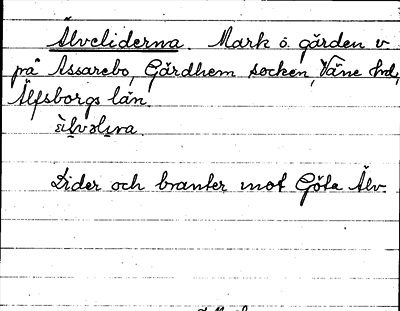 Älveliderna. Mark ö. gården v
på Assarebo, Gärdhem socken, Väne hd,
Älfsborgs län.
Lider och branter mot Göta Älv.